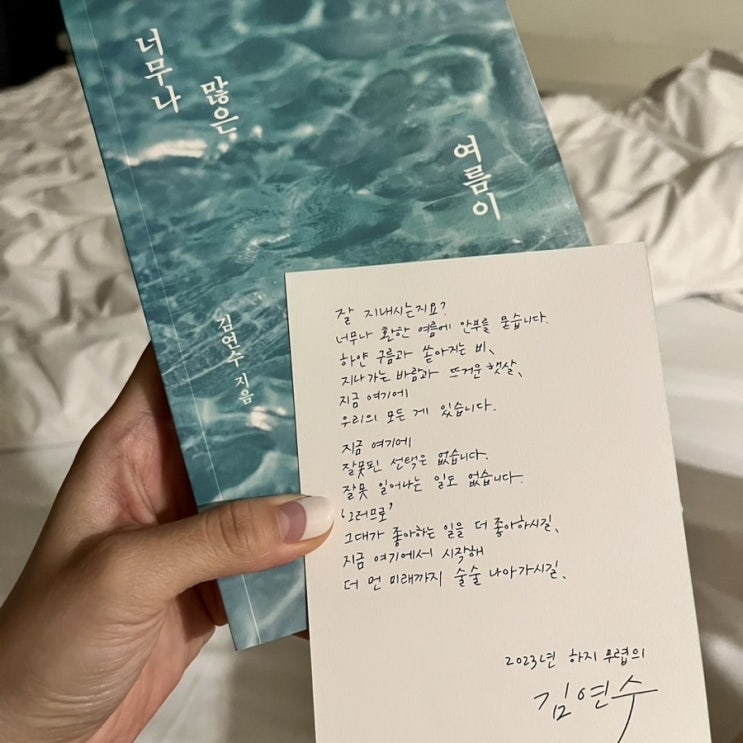 너무나
많은
여름이
김연수 지음
잘 지내시는지요?
너무나 환한 여름에 안부를 묻습니다.
하얀 구름과 쏟아지는 비,
지나가는 바람과 뜨거운 햇살,
지금 여기에
우리의 모든 게 있습니다.
지금 여기에
잘못된 선택은 없습니다.
잘못 일어나는 일도 없습니다.
'그러므로'
그대가 좋아하는 일을 더 좋아하시길,
지금 여기에서 시작해
더 먼 미래까지 술술 나아가시길,
2023년 하지 무렵의
김연수